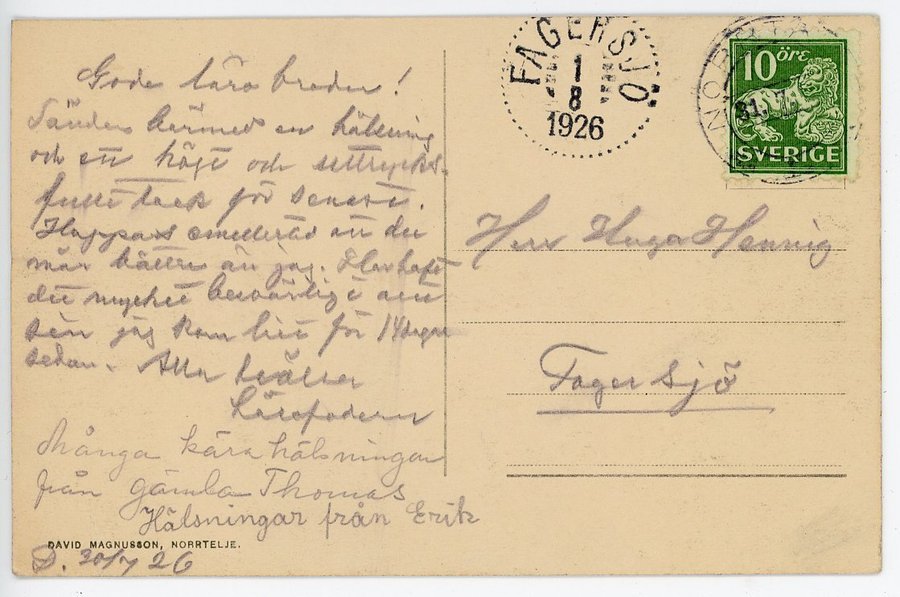 Gode kära broder!
Sänder härmed en hälsning
och ett högt och uttrycks-
fullt tack för senast.
Hoppas emellertid att du
mår bättre än jag. Har haft
det mycket besvärligt allt
sen jag kom hit för 14 dagar
sedan. Alla hälsar
Många kära hälsningar
från gamla Thomas
Hälsningar från Erik
DAVID MAGNUSSON, NORRTELJE.
D. 30/7 26
FAGERSJÖ
1
8
1926
10 ÖRE
SVERIGE
31. 7.
Herr Hugo Hennig
Fagersjö